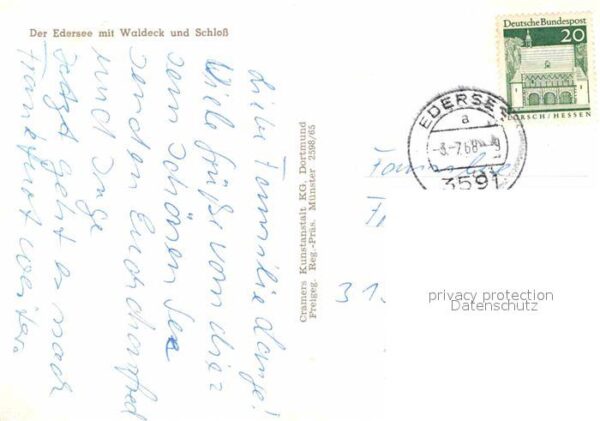 Der Edersee mit Waldeck und Schloß
Liebe Familie Lange!
Viele Grüße von die=
sem schönen See
senden Euch
und Inge
Jetzt geht es nach
Frankfurt weiter.
Cramers Kunstanstalt KG, Dortmund
Freigeg. Reg.-Präs. Münster 2598/65
Deutsche Bundespost
20
LORSCH/HESSEN
EDERSEE
a
-3.-7.68-9
3591
Familie
31.
privacy protection
Datenschutz